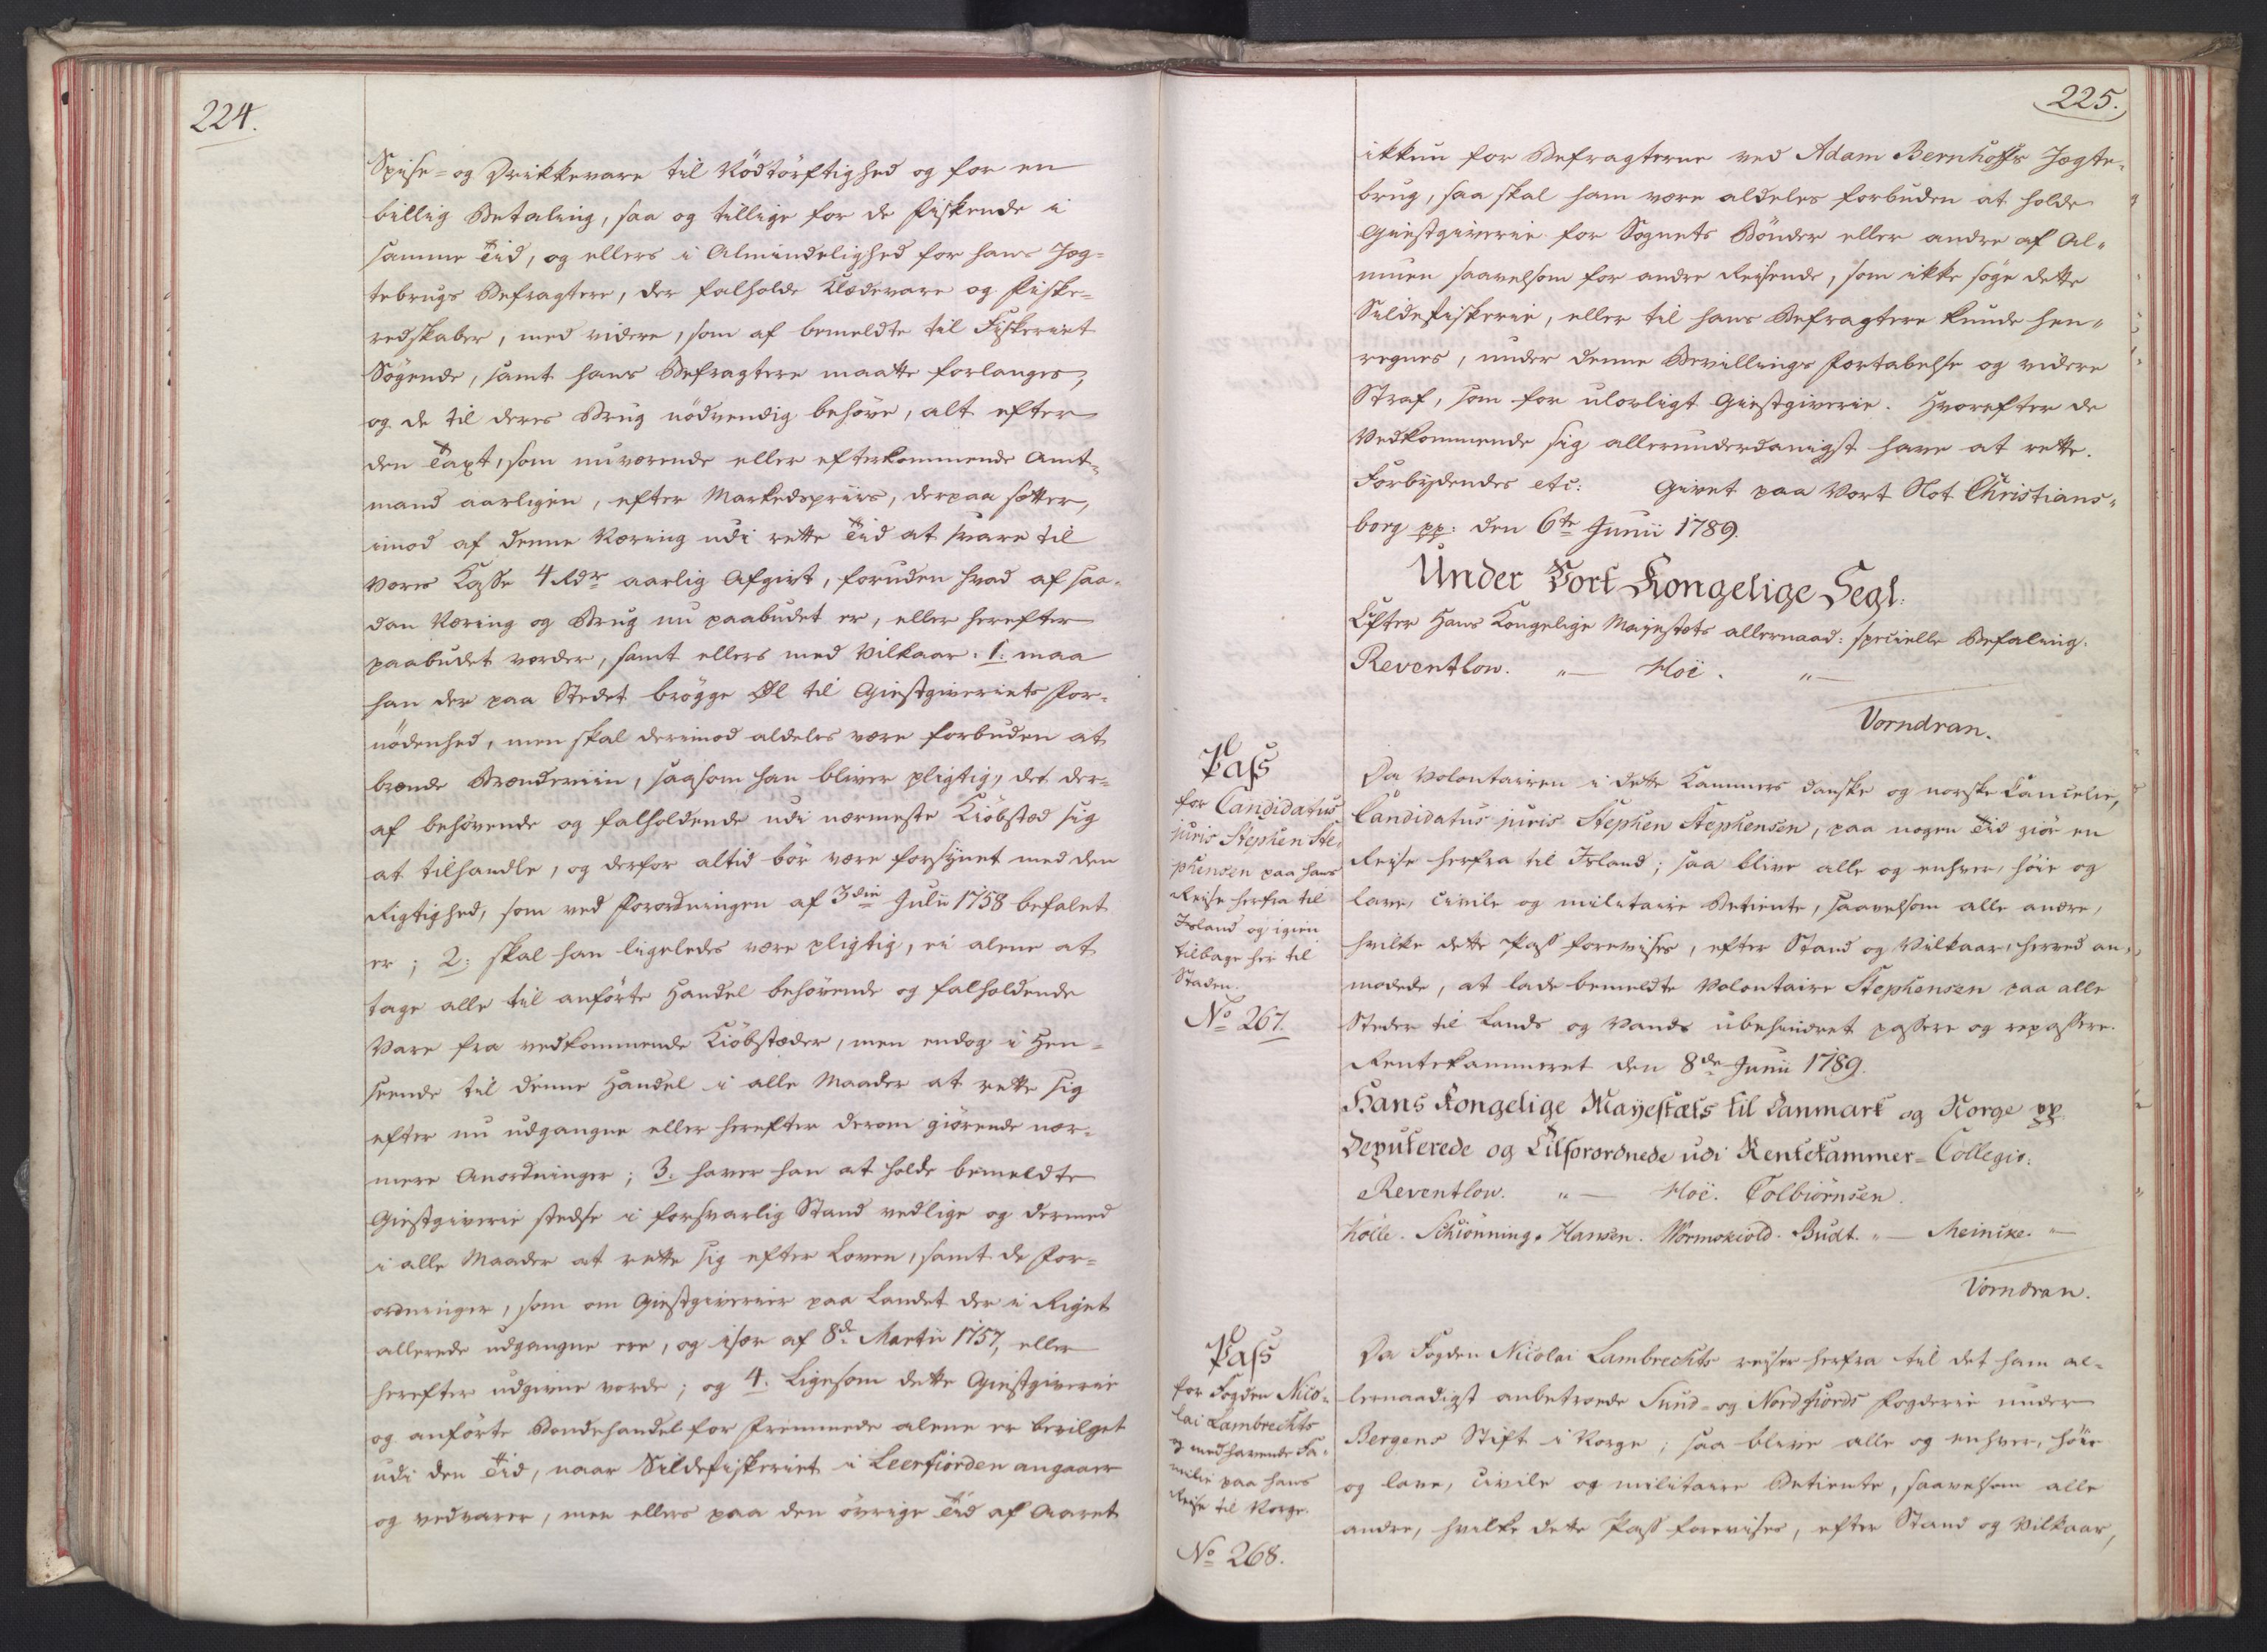 224.
Spise- og Drikkevare til Nödtörftighed og for en
billig Betaling, saa og tillige for de fiskende i
samme Tid, og ellers i Almindelighed for hans Jæg-
tebrugs Befragtere, der falholde Klædevare og Fiske-
redskaber, med videre, som af bemeldte til Fiskeriet
Sögende, samt hans Befragtere maatte forlanges,
og de til deres Brug nödvendig behöve, alt efter
den Taxt, som nuværende eller efterkommende Amt-
mand aarligen, efter Markedspriis, derpaa sætter,
imod af denne Næring udi rette Tid at svare til
Vores Kasse 4 Rdr aarlig Afgivt, foruden hvad af saa-
dan Næring og Brug nu paabudet er, eller herefter
paabudet vorder, samt ellers med Vilkaar: 1. maa
han der paa Stedet brögge Öl til Giestgiveriets For-
nödenhed, men skal derimod aldeles være forbuden at
brænde Brændeviin, saasom han bliver pligtig, det der-
af behövende og falholdende udi nærmeste Kiöbstæd sig
at tilhandle, og derfor altid bör være forsynet med den
Rigtighed, som ved Forordningen af 3die Julii 1758 befalet
er; 2. skal han ligeledes være pligtig, ei alene at
tage alle til anförte Handel behövende og falholdende
Vare fra vedkommende Kiöbstæder, men endog i Hen-
seende til denne Handel i alle Maader at rette sig
efter nu udgangne eller herefter derom giörende nær-
mere Anordninger; 3. haver han at holde bemeldte
Giestgiverie stedse i forsvarlig Stand vedlige og dermed
i alle Maader at rette sig efter Loven, samt de For-
ordninger, som om Giestgiverier paa Landet der i Riget
allerede udgangne ere, og især af 8de Martii 1757, eller
herefter udgivne vorde; og 4. Ligesom dette Giestgiverie
og anförte Bondehandel for Fremmede alene er bevilget
udi den Tid, naar Sildefiskeriet i Leerfiorden angaaer
og vedvarer, men ellers paa den övrige Tid af Aaret
225.
ikkun for Befragterne ved Adam Bernhoffs Jægte-
brug, saa skal ham være aldeles forbuden at holde
Giestgiverie for Sognets Bönder eller andre af Al-
muen saavelsom for andre Reisende, som ikke söge dette
Sildefiskerie, eller til hans Befragtere kunde hen-
regnes, under denne Bevillings Fortabelse og videre
Straf, som for ulovligt Giestgiverie. Hvorefter de
Vedkommende sig allerunderdanigst have at rette.
Forbydendes etc: Givet paa Vort Slot Christians-
borg pp: den 6te Junii 1789.
Under Vort Kongelige Segl:
Efter Hans Kongelige Majestæts allernaad: specielle Befaling.
Reventlow. "— Hoë. "—
Vorndran.
Pass
for Candidatus
juris Stephen Ste-
phensen paa hans
Reise herfra til
Island og igien
tilbage her til
Staden.
No 267.
Da Volontairen i dette Kammers danske og norske Cancelie,
Candidatus juris Stephen Stephensen, paa nogen Tid giör en
Reise herfra til Island; saa blive alle og enhver, höie og
lave, civile og militaire Betiente, saavelsom alle andre,
hvilke dette Pass forevises, efter Stand og Vilkaar, herved an-
modede, at lade bemeldte Volontaire Stephensen paa alle
Steder til Lands og Vands ubehindret passere og repassere.
Rentekammeret den 8de Junii 1789.
Hans Kongelige Mayestæts til Danmark og Norge pp
Deputerede og Tilforordnede udi Rentekammer-Collegio:
Reventlow. "— Hoë. Colbiörnsen.
Kölle. Schiönning. Hansen. Wormskiold. Budt. "— Meincke. "—
Vorndran.
Pass
for Fogden Nico-
lai Lambrechts
og medhavende Fa-
milie paa hans
Reise til Norge.
No 268.
Da Fogden Nicolai Lambrechts reiser herfra til det ham al-
lernaadigst anbetroede Sund- og Nordfiords Fogderie under
Bergens Stift i Norge; saa blive alle og enhver, höie
og lave, civile og militaire Betiente, saavelsom alle
andre, hvilke dette Pass forevises, efter Stand og Vilkaar,